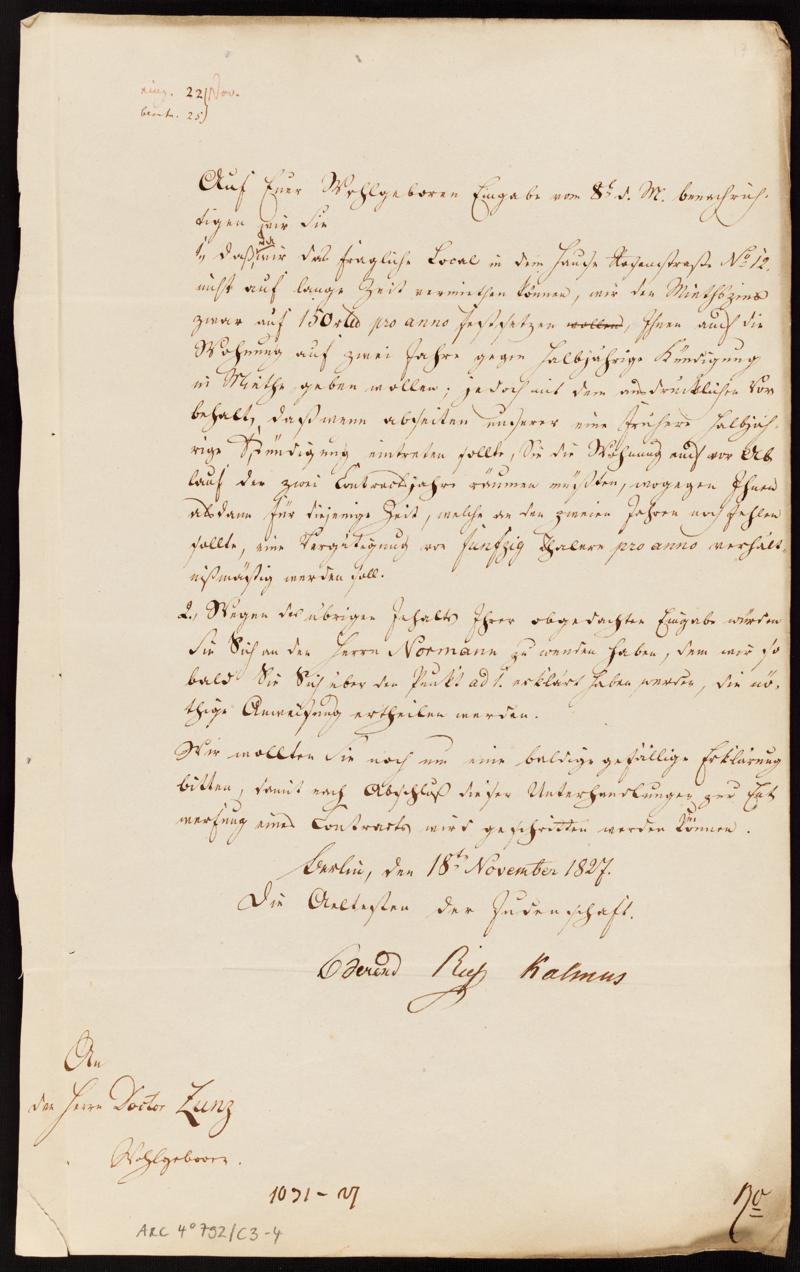 eing. 22 Nov.
beantw. 25
Auf Euer Wohlgeboren Eingabe vom 8t d. M. benachrich-
tigen wir Sie
1, daß da wir das fragliche Local in dem Hause Rosenstraße No 12.
nicht auf lange Zeit vermiethen können, wir den Miethszins
zwar auf 150 rtlr pro anno festsetzen wollen, Ihnen auch die
Wohnung auf zwei Jahre gegen halbjährige Kündigung
in Miethe geben wollen; jedoch mit dem ausdrücklichen Vor
behalt, daß wenn abseiten unserer eine frühere halbjäh-
rige Kündigung eintreten sollte, Sie die Wohnung auch vor Ab
lauf der zwei Contractsjahre räumen müßten, wogegen Ihnen
alsdann für diejenige Zeit, welche an den zweien Jahren noch fehlen
sollte, eine Vergütigung von funfzig Thalern pro anno verhält-
nißmäßig werden soll.
2., Wegen des übrigen Inhalts Ihrer obgedachten Eingabe würden
Sie Sich an den Herrn Normann zu wenden haben, dem wir so
bald Sie Sich über den Punkt ad 1. erklärt haben werden, die nö-
thige Anweisung ertheilen werden.
Wir wollten Sie noch um eine baldige gefällige Erklärung
bitten, damit nach Abschluß dieser Unterhandlungen zur Ent
werfung eines Contracts wird geschritten werden können.
Berlin, den 18ten November 1827.
Die Aeltesten der Judenschaft.
Berend Rieß Kalmus
An
den Herrn Doctor Zunz
Wohlgeboren.
1031-27
ARC 4° 792/C3-4